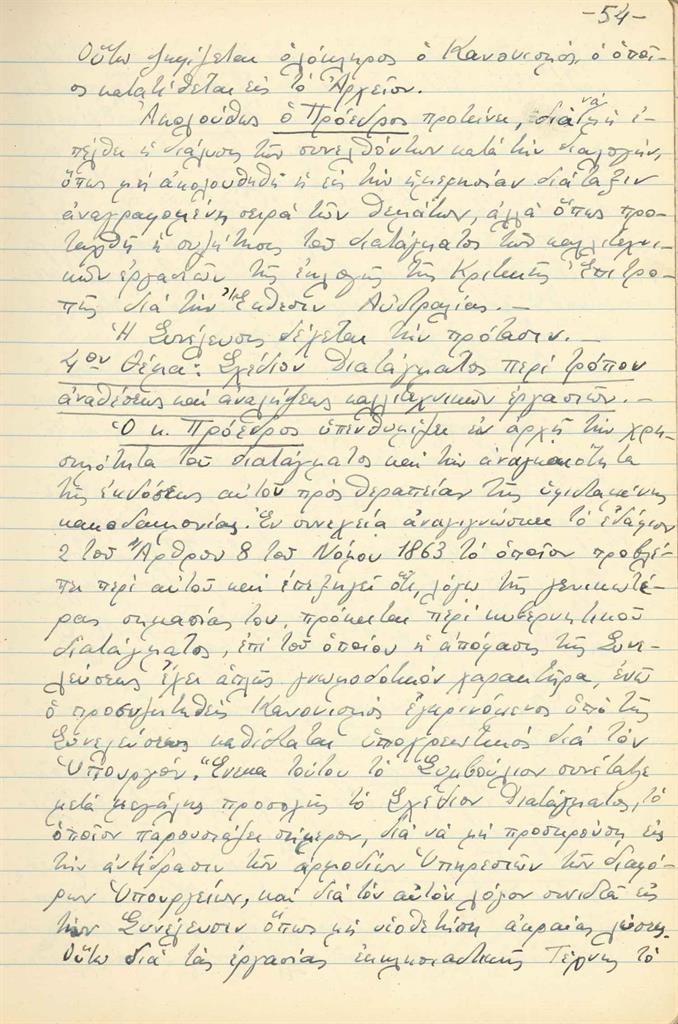 -54-
Οὕτω ψηφίζεται ὁλόκληρος ὁ Κανονισμός, ὁ ὁποῖ-
ος κατατίθεται εἰς τὸ Ἀρχεῖον.
Ἀκολούθως ὁ Πρόεδρος προτείνει, διὰ νὰ μὴ ἐ-
πέλθῃ ἡ διάλυσις τῶν συνελθόντων κατὰ τὴν διαλογήν,
ὅπως μὴ ἀκολουθηθῇ ἡ εἰς τὴν ἡμερησίαν διάταξιν
ἀναγραφομένη σειρὰ τῶν θεμάτων, ἀλλὰ ὅπως προ-
ταχθῇ ἡ συζήτησις τοῦ διατάγματος τῶν καλλιτεχνι-
κῶν ἐργασιῶν τῆς ἐκλογῆς τῆς Κριτικῆς Ἐπιτρο-
πῆς διὰ τὴν Ἔκθεσιν Αὐστραλίας. -
Ἡ Συνέλευσις δέχεται τὴν πρότασιν. -
4ον Θέμα: Σχέδιον Διατάγματος περὶ τρόπου
ἀναθέσεως καὶ ἀναλήψεως καλλιτεχνικῶν ἐργασιῶν. -
Ὁ κ. Πρόεδρος ὑπενθυμίζει ἐν ἀρχῇ τὴν χρη-
σιμότητα τοῦ διατάγματος καὶ τὴν ἀναγκαιότητα
τῆς ἐκδόσεως αὐτοῦ πρὸς θεραπείαν τῆς ὑφισταμένης
κακοδαιμονίας. Ἐν συνεχείᾳ ἀναγιγνώσκει τὸ ἐδάφιον
2 τοῦ Ἄρθρου 8 τοῦ Νόμου 1863 τὸ ὁποῖον προβλέ-
πει περὶ αὐτοῦ καὶ ἐπεξηγεῖ ὅτι, λόγῳ τῆς γενικωτέ-
ρας σημασίας του, πρόκειται περὶ κυβερνητικοῦ
διατάγματος, ἐπὶ τοῦ ὁποίου ἡ ἀπόφασις τῆς Συνε-
λεύσεως ἔχει ἁπλῶς γνωμοδοτικὸν χαρακτῆρα, ἐνῶ
ὁ προσυζητηθεὶς Κανονισμὸς ἐγκρινόμενος ὑπὸ τῆς
Συνελεύσεως καθίσταται ὑποχρεωτικὸς διὰ τὸν
Ὑπουργόν. Ἕνεκα τούτου τὸ Συμβούλιον συνέταξε
μετὰ μεγάλης προσοχῆς τὸ Σχέδιον Διατάγματος, τὸ
ὁποῖον παρουσιάζει σήμερον, διὰ νὰ μὴ προσκρούσῃ εἰς
τὴν ἀντίδρασιν τῶν ἁρμοδίων Ὑπηρεσιῶν τῶν διαφό-
ρων Ὑπουργείων, καὶ διὰ τὸν αὐτὸν λόγον συνιστᾷ εἰς
τὴν Συνέλευσιν ὅπως μὴ υἱοθετήσῃ ἀκραίας λύσεις.
Οὕτω διὰ τὰς ἐργασίας ἐκκλησιαστικῆς Τέχνης τὸ